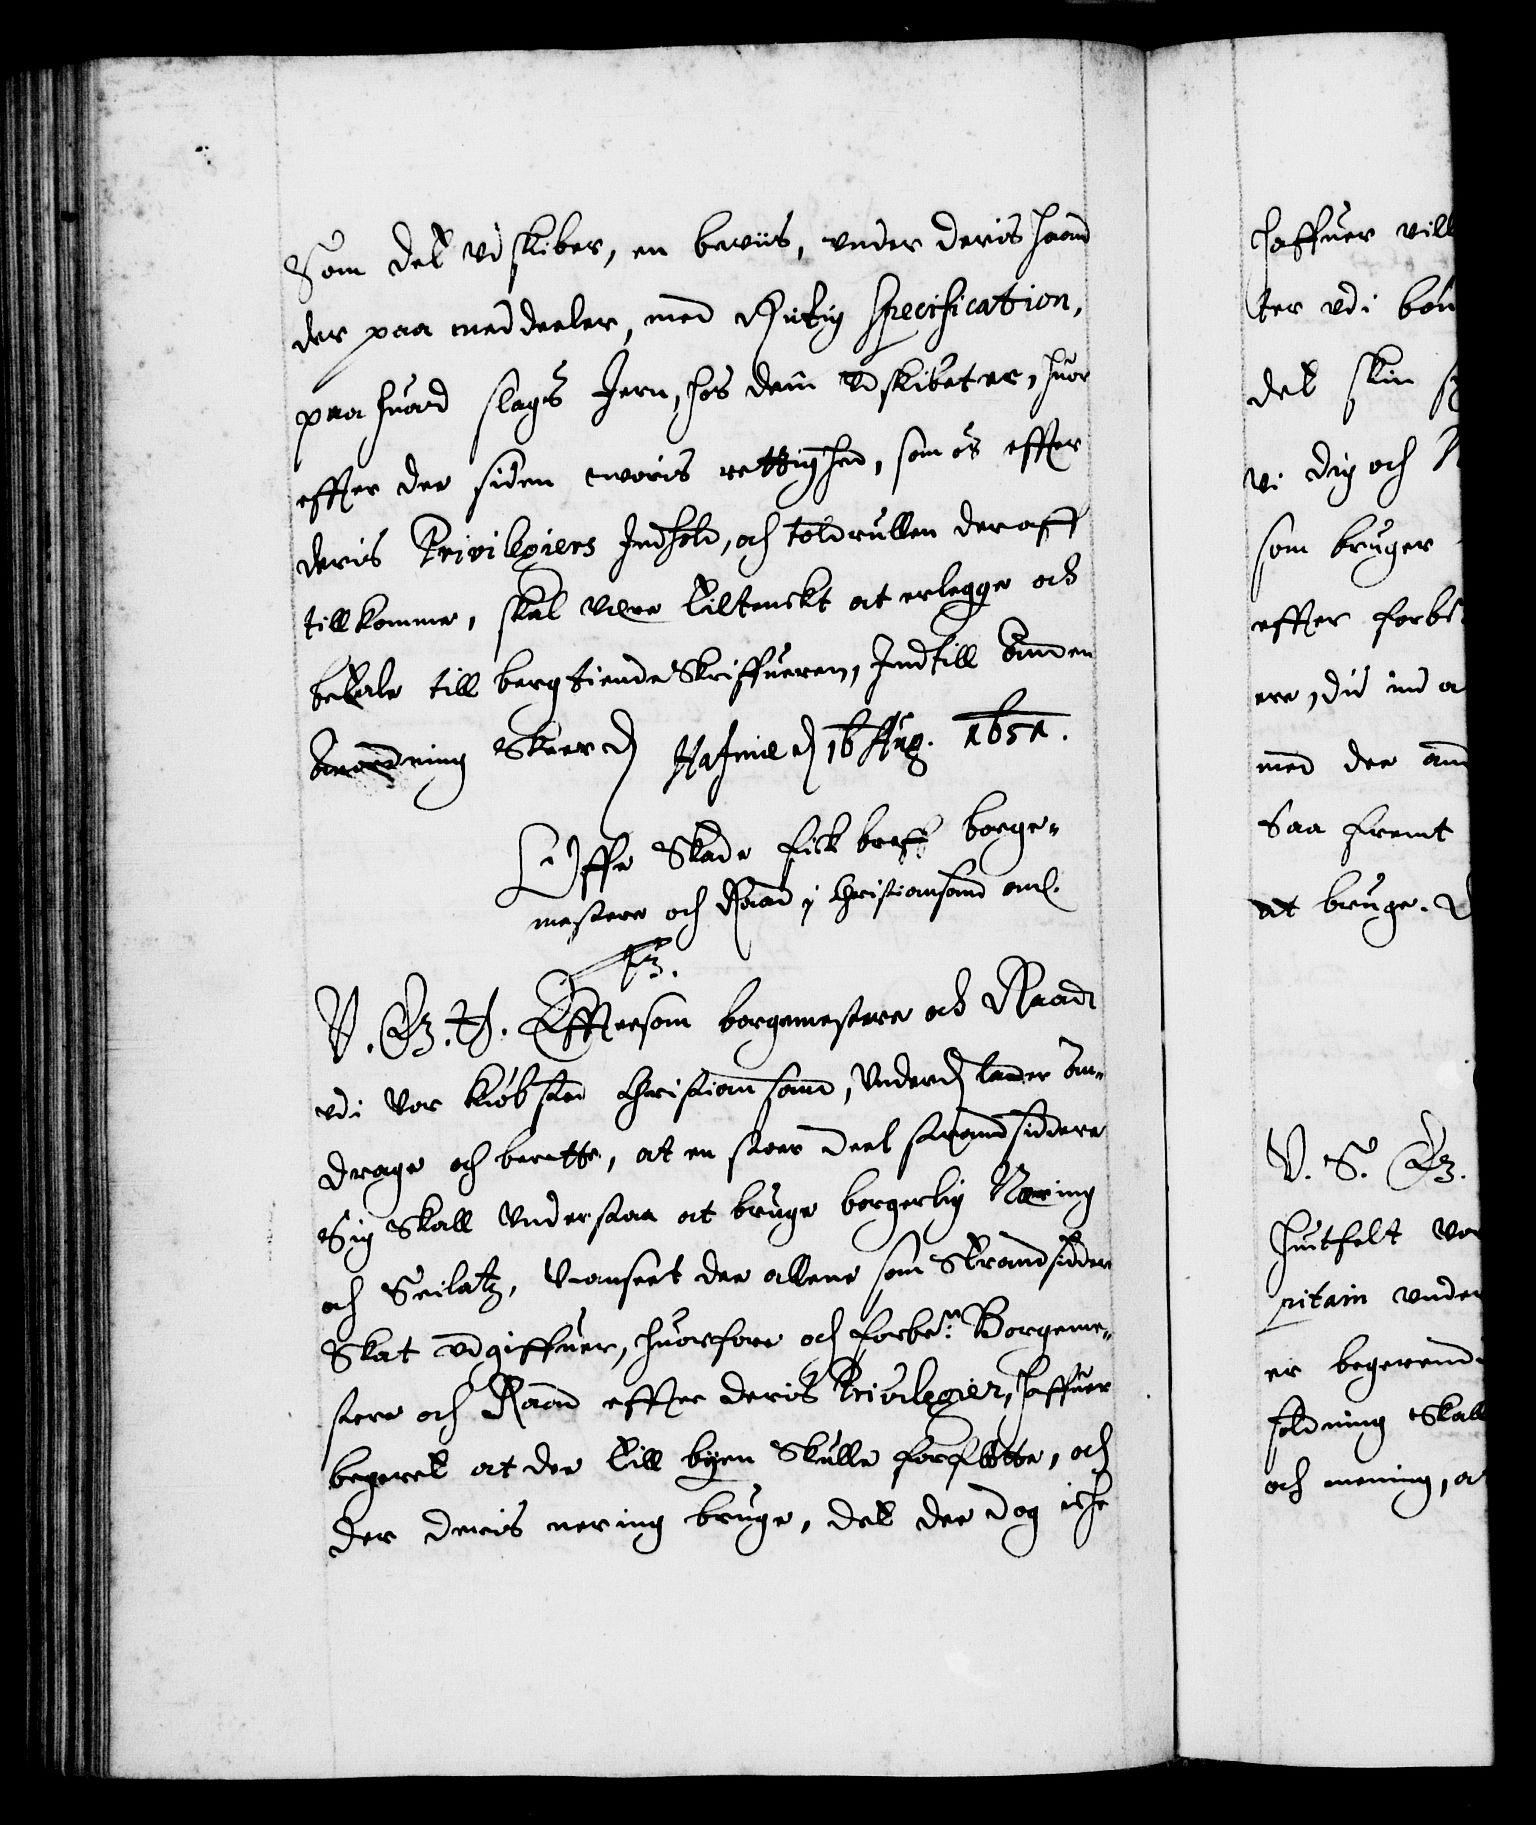 Som det vdskiber, en beviis, vnder deris haand
der paa meddeeler, med Rigtig specification,
paa huad slags Jern, hos dem vdskibet er, huor
effter dee siden voris rettighed, som os effter
deris Privilegiers Indhold, och toldrullen deraff
tillkomme, skal være tiltenckt at erlegge och
betale till bergtiende Skriffueren, Indtill Anden
Anordning Skeer Hafniæ 16 Aug. 1651.
Uffe Skade fick breff borge-
mestere och Raad j Christiansand anl.
F3.
V. G. T. Efftersom borgemestere och Raad
vdi vor kiøbsted Christiansand, Vnderd lader an-
drage och berette, at en stoer deel strandsiddere
Sig Skall vnderstaa at bruge borgerlig Næring
och Seilatz, Vanseet dee allene som Strandsiddere
Skat vdgiffuer, huorfore och forbe.n Borgeme-
stere och Raad effter deris Privilegier, haffuer
begeret at dee till byen Skulle forfløtte, och
der deris nering bruge, det dee dog iche
haffuer vill
ter vdi
det skin
vi dig och
som bruger
effter
ere, du
med dee
Saa fremt
at bruge.
V. S. G.
Huitfelt
pitain vnder
er begerend
holdning Skall
och mening, at